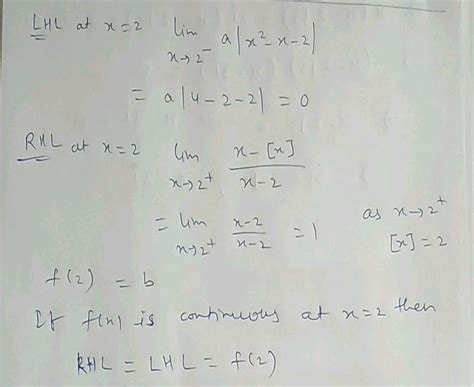 LHL at x=2 lim x→2⁻ a|x²-x-2|
= a|4-2-2| = 0
RHL at x=2 lim x→2⁺ x-[x] / x-2
= lim x→2⁺ x-2 / x-2 = 1 as x→2⁺ [x]=2
f(2) = b
If f(x) is continuous at x=2 then
RHL = LHL = f(2)